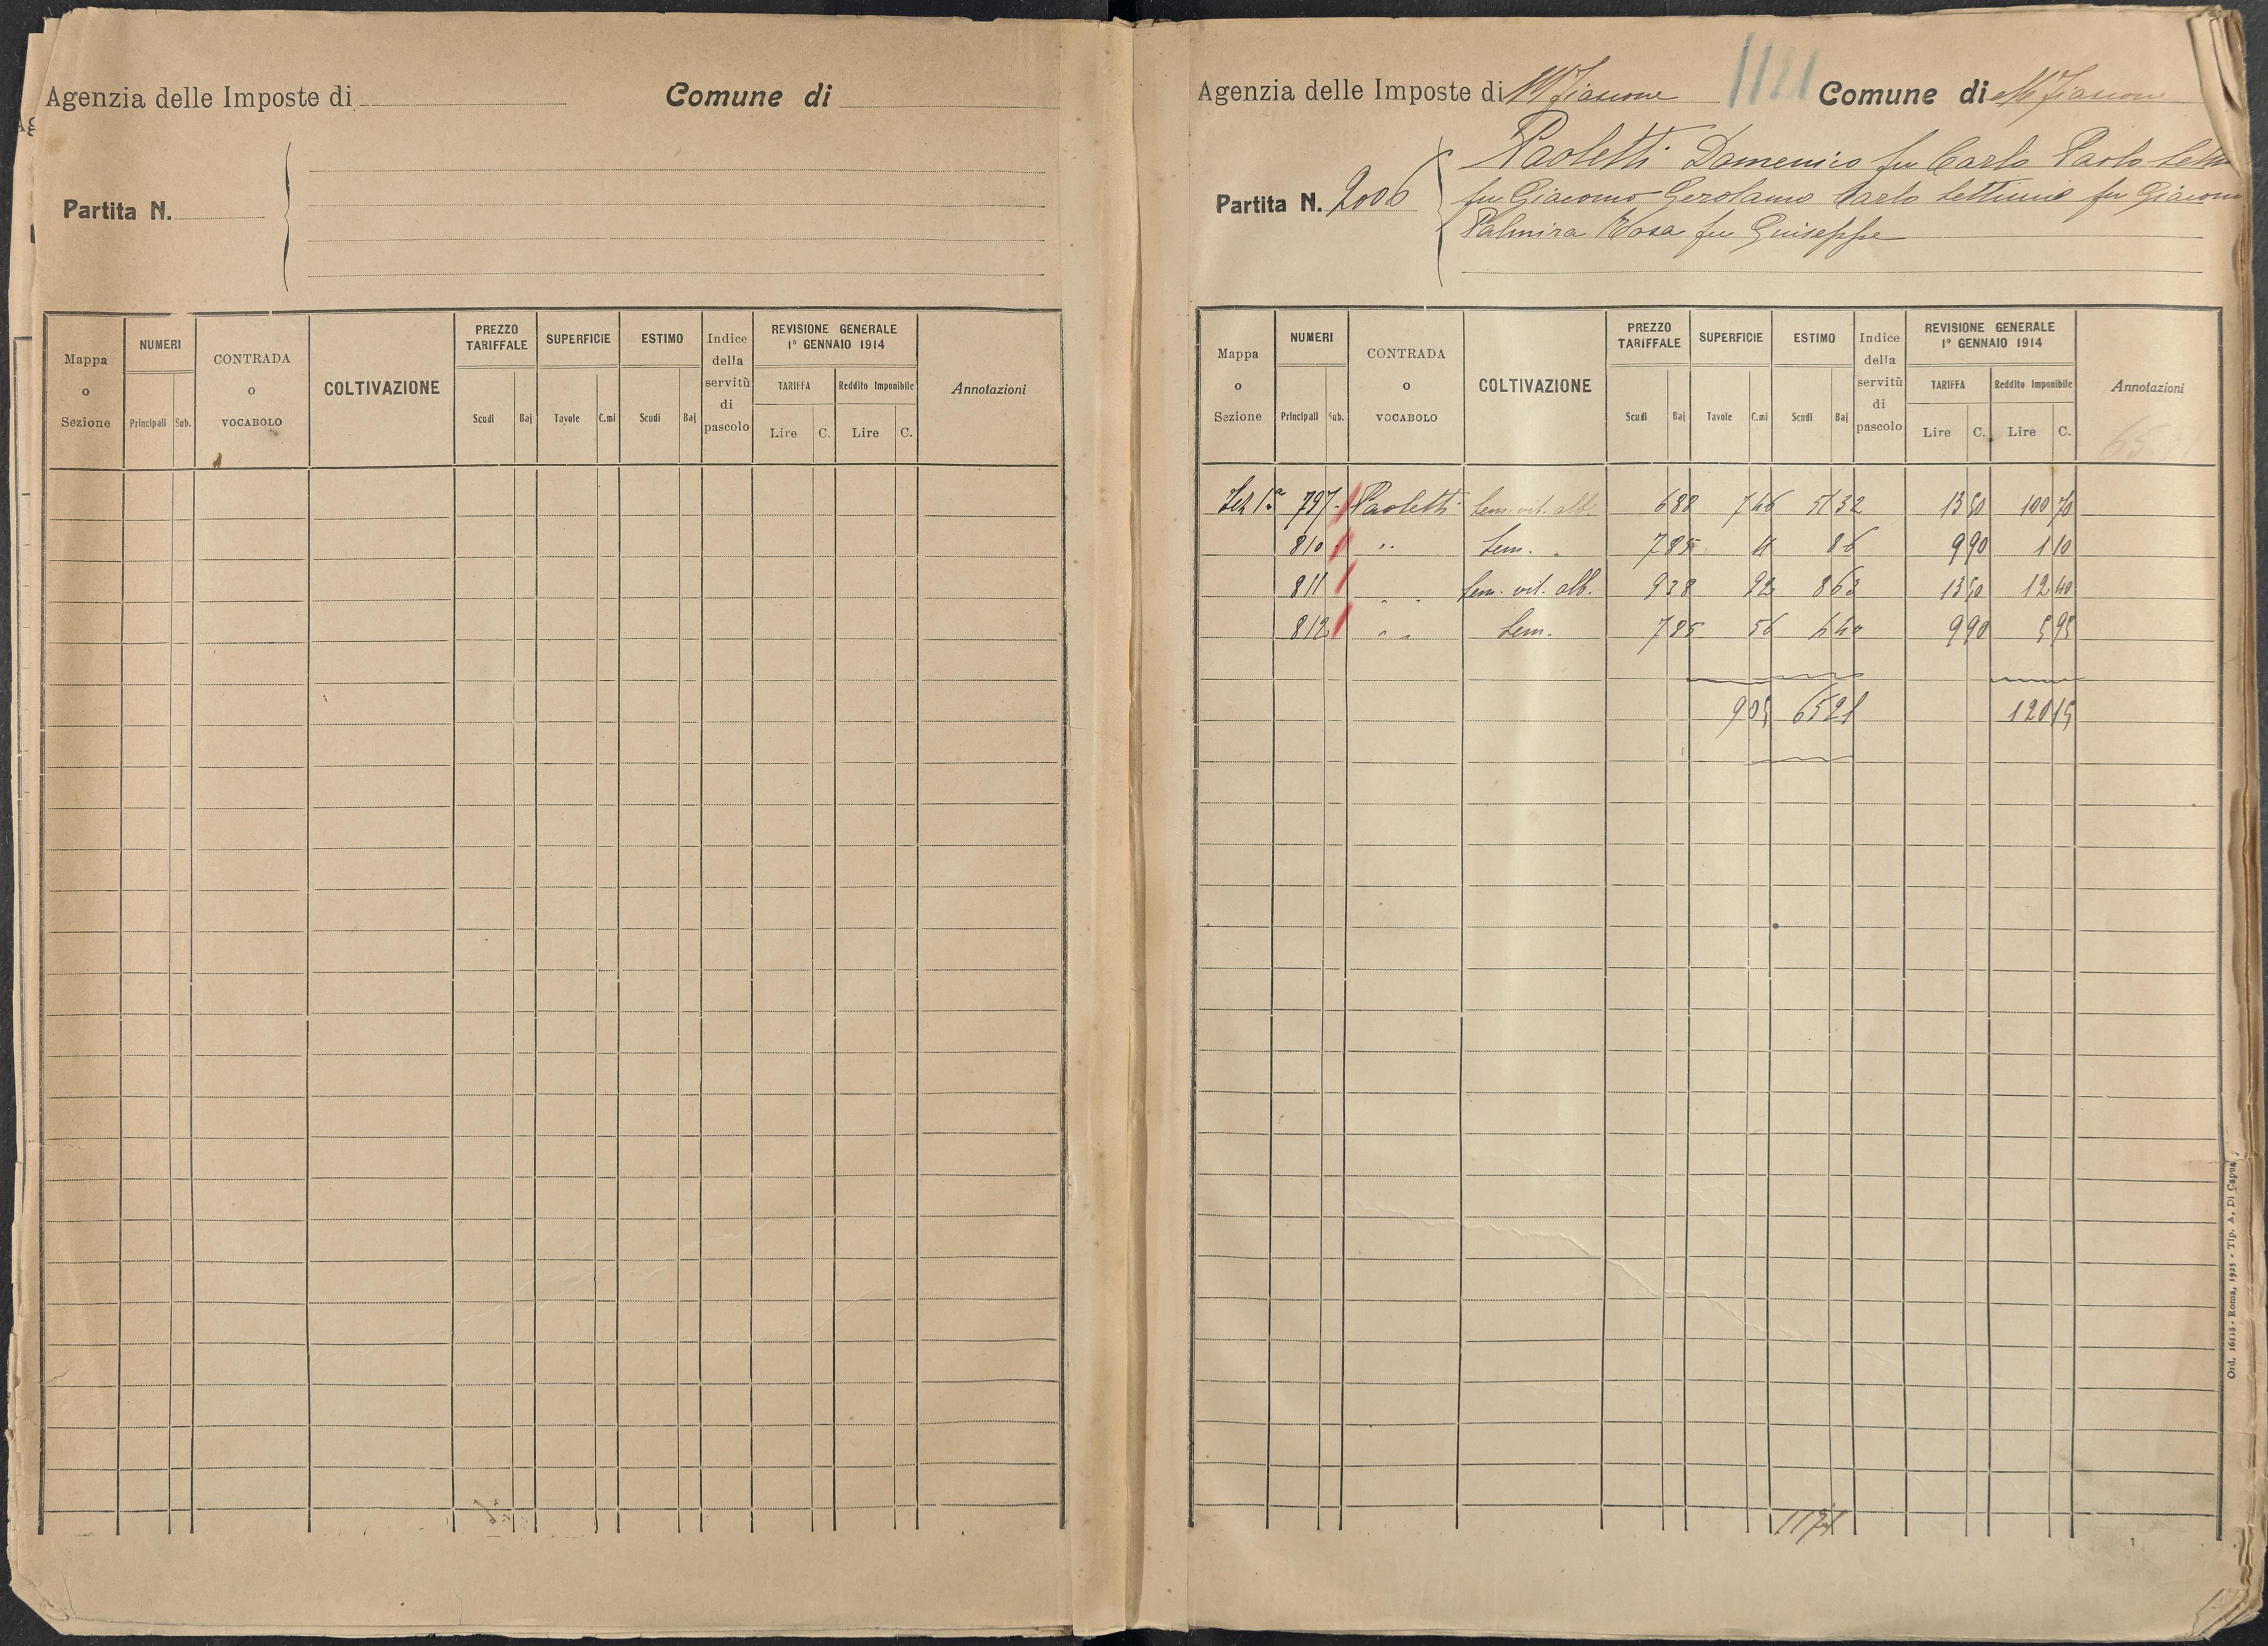 Agenzia delle Imposte di
Comune di
Partita N.
Mappa o Sezione
NUMERI
Principali
Sub.
CONTRADA o VOCABOLO
COLTIVAZIONE
PREZZO TARIFFALE
Scudi
Baj
SUPERFICIE
Tavole
C.mi
ESTIMO
Scudi
Baj
Indice della servitù di pascolo
REVISIONE GENERALE
1° GENNAIO 1914
TARIFFA
Lire
C.
Reddito Imponibile
Lire
C.
Annotazioni
1121
Agenzia delle Imposte di
Comune di
Partita N. 2006
Paoletti Domenico fu Carlo Paolo
fu Giacomo Gerolamo Carlo Settimio fu Giacom
Palmira Rosa fu Giuseppe
Mappa o Sezione
NUMERI
Principali
Sub.
CONTRADA o VOCABOLO
COLTIVAZIONE
PREZZO TARIFFALE
Scudi
Baj
SUPERFICIE
Tavole
C.mi
ESTIMO
Scudi
Baj
Indice della servitù di pascolo
REVISIONE GENERALE
1° GENNAIO 1914
TARIFFA
Lire
C.
Reddito Imponibile
Lire
C.
Annotazioni
Sez 1ª 797 Paoletti Sem. vit. alb. 6 88 7 46 51 32 13 50 100 70
810 " Sem. 7 85 11 86 9 90 1 10
811 " " Sem. vit. alb. 9 38 92 8 63 13 50 12 40
812 " " Sem. 7 85 56 4 40 9 90 5 95
9 05 65 21 120 15
Ord. 16518 - Roma, 1925 - Tip. A. Di Capua